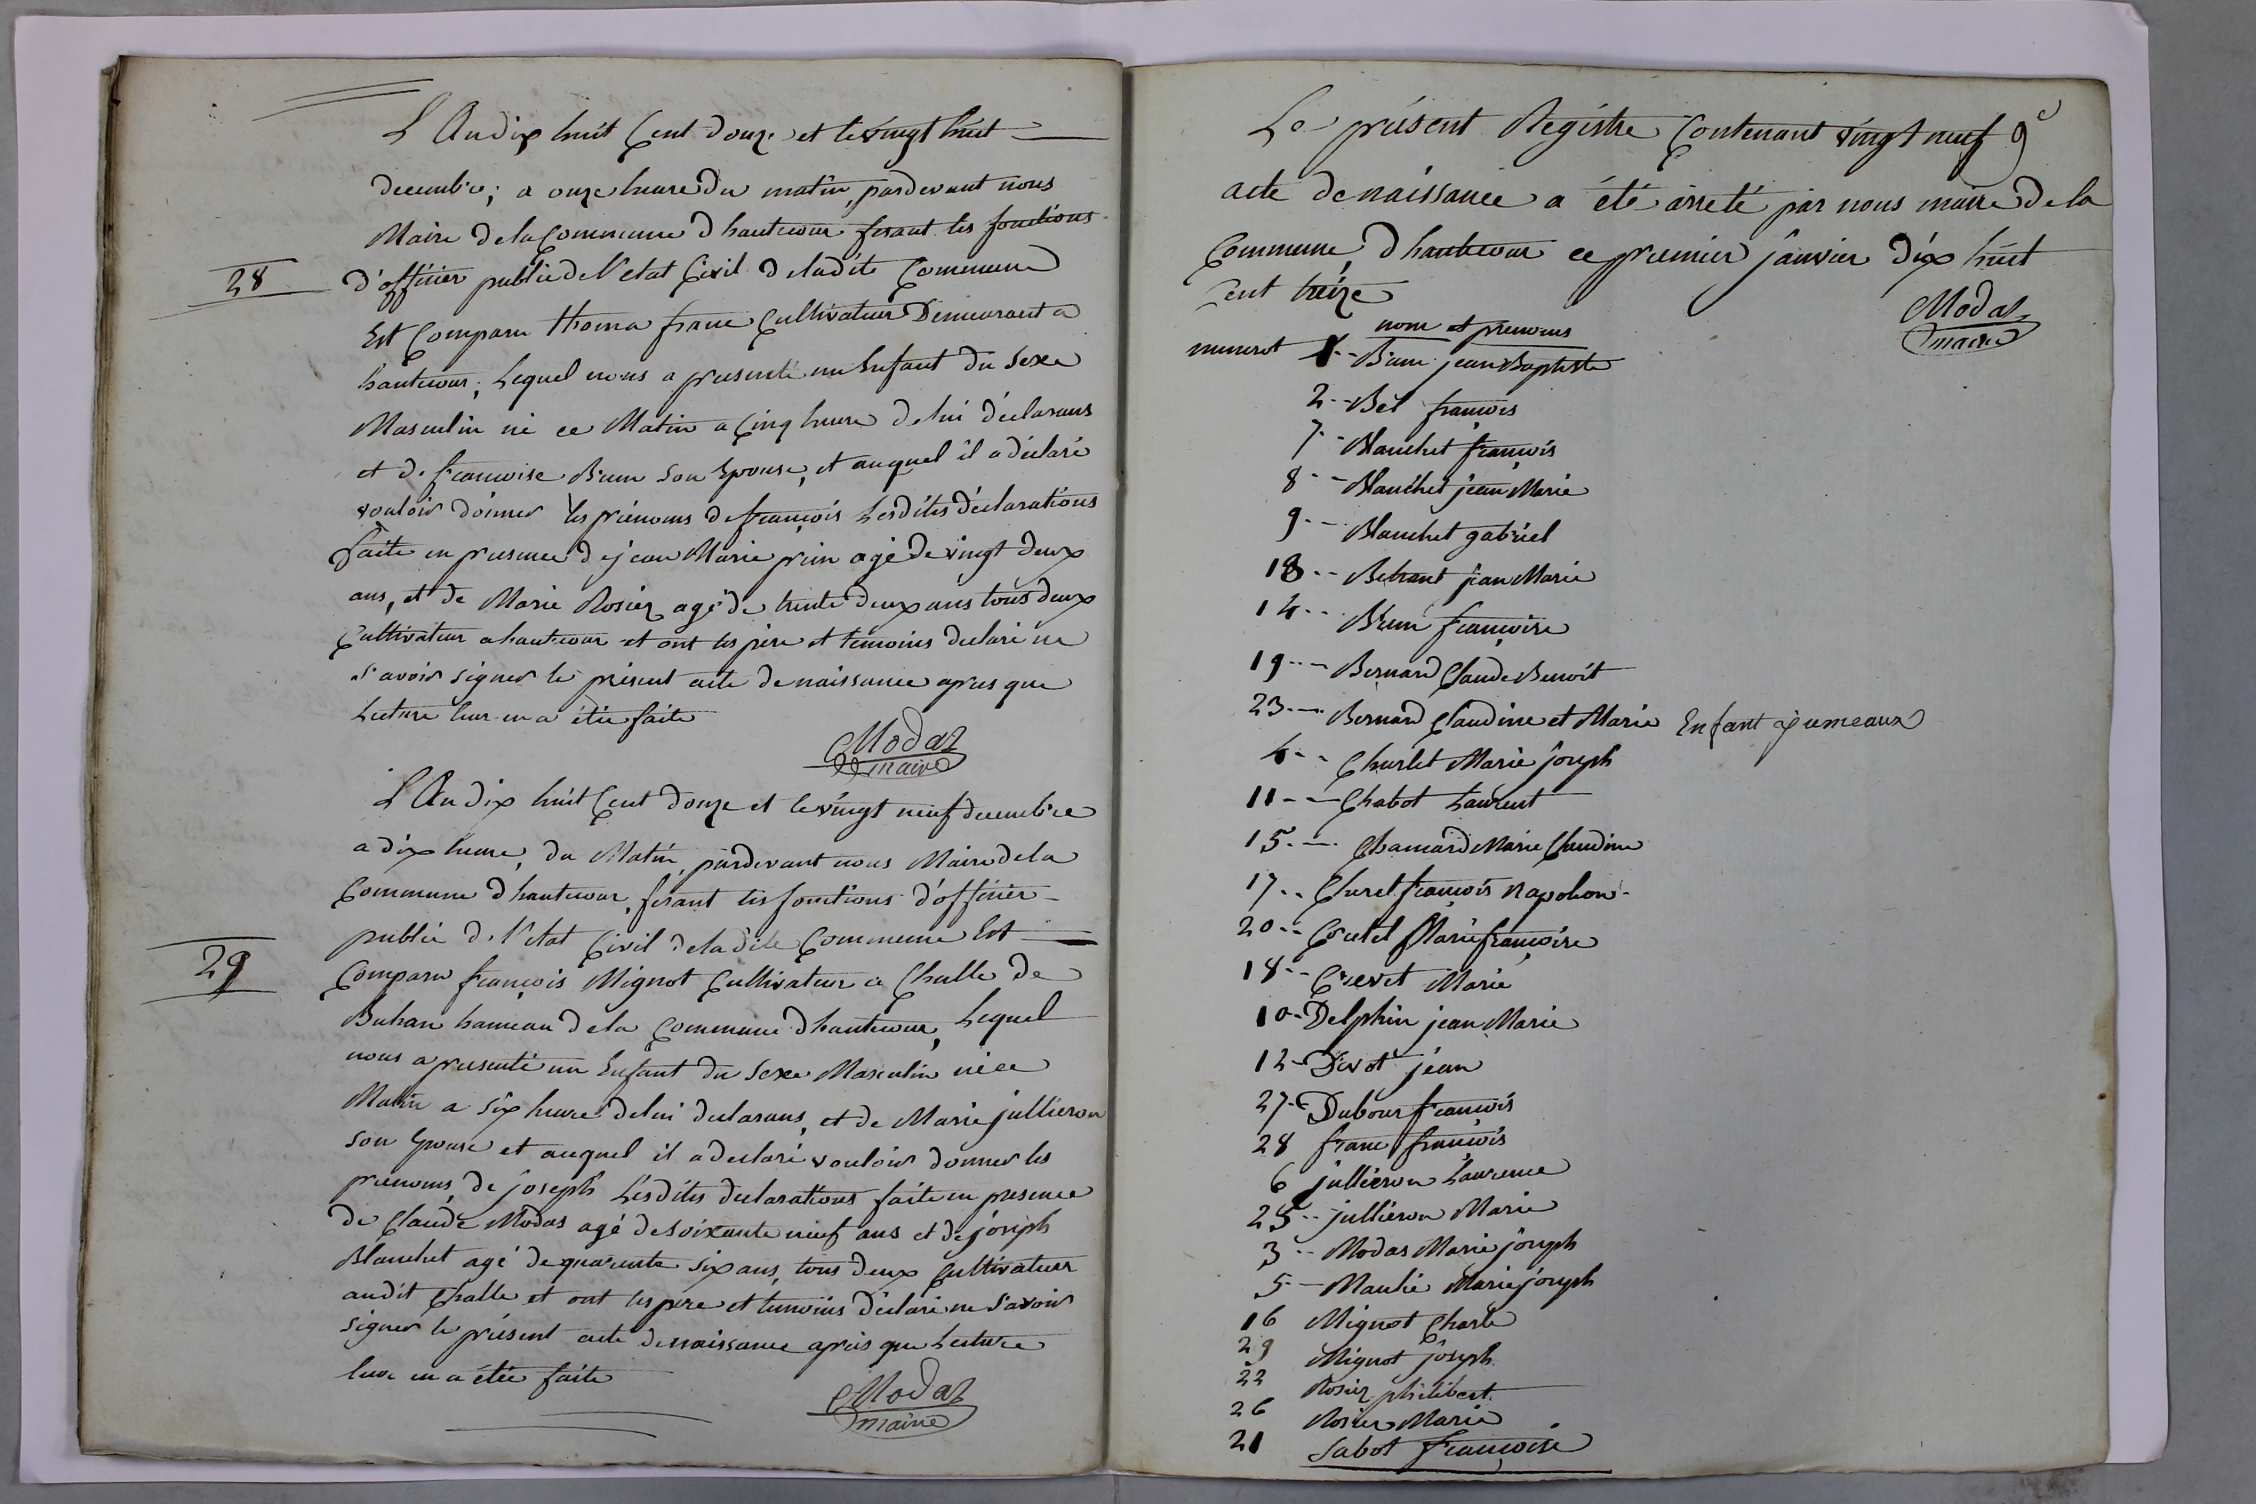 L'An dix huit Cent douze et le vingt huit
decembre; a onze heure du matin, pardevant nous
Maire de la Commune d'hautecour fesant les fonctions
28
d'officier public de l'etat Civil de ladite Commune
Est Comparu thoma franc Cultivateur Demeurant a
hautecour; Lequel nous a presenté un Enfant du Sexe
Masculin né ce Matin a Cinq heure de lui déclarans
et de francoise Brun Son Epouse, et auquel il a déclaré
vouloir donner les prénoms de françois Lesdites déclarations
faite en presence de jean Marie prin agé de vingt deux
ans, et de Marie Rosier agé de trente deux ans tous deux
Cultivateur a hautecour et ont les pere et temoins declaré ne
savoir signer le présent acte de naissance apres que
Lecture leur en a étée faite
Modas
maire
L'An dix huit Cent douze et le vingt neuf decembre
a dix heure, du Matin, pardevant nous Maire de la
Commune d'hautecour, fesant les fonctions d'officier
public de l'etat Civil de ladite Commune Est
29
Comparu françois Mignot Cultivateur a Challe de
Bohan hameau de la Commune d'hautecour, Lequel
nous a presenté un Enfant du Sexe Masculin né ce
Matin a Six heure de lui declarans, et de Marie jullieron
son Epouse et auquel il a declaré vouloir donner les
prenoms, de joseph Lesdites declarations faite en presence
de Claude Modas agé de soixante neuf ans et de joseph
Blanchet agé de quarente six ans, tous deux Cultivateur
audit Challe et ont les pere et temoins déclaré ne savoir
signer le présent acte de naissance après que Lecture
leur en a étée faite
Modas
maire
Le présent Registre Contenant vingt neuf
acte de naissance a été arreté par nous maire de la
Commune, d'hautecour ce premier janvier dix huit
Cent treize
Modas
maire
nom et prenoms
numerot 1 Brun jean Baptiste
2 Bel françois
7 Blanchet françois
8 Blanchet jean Marie
9 Blanchet gabriel
13 Betrant jean Marie
14 Brun françoise
19 Bernard Claude Benoit
23 Bernard Claudine et Marie Enfant jumeaux
4 Churlet Marie joseph
11 Chabot Laurent
15 Chanard Marie Claudine
17 Churel françois Napoleon
20 Coutel Marie françoise
18 Crevet Marie
10 Delphin jean Marie
12 Divot jean
27 Dubour françois
28 franc françois
6 jullieron Laurence
25 jullieron Marie
3 Modas Marie joseph
5 Marie joseph
16 Mignot Charle
29 Mignot joseph
22 Rosier philibert
26 Rosier Marie
21 Sabot françoise